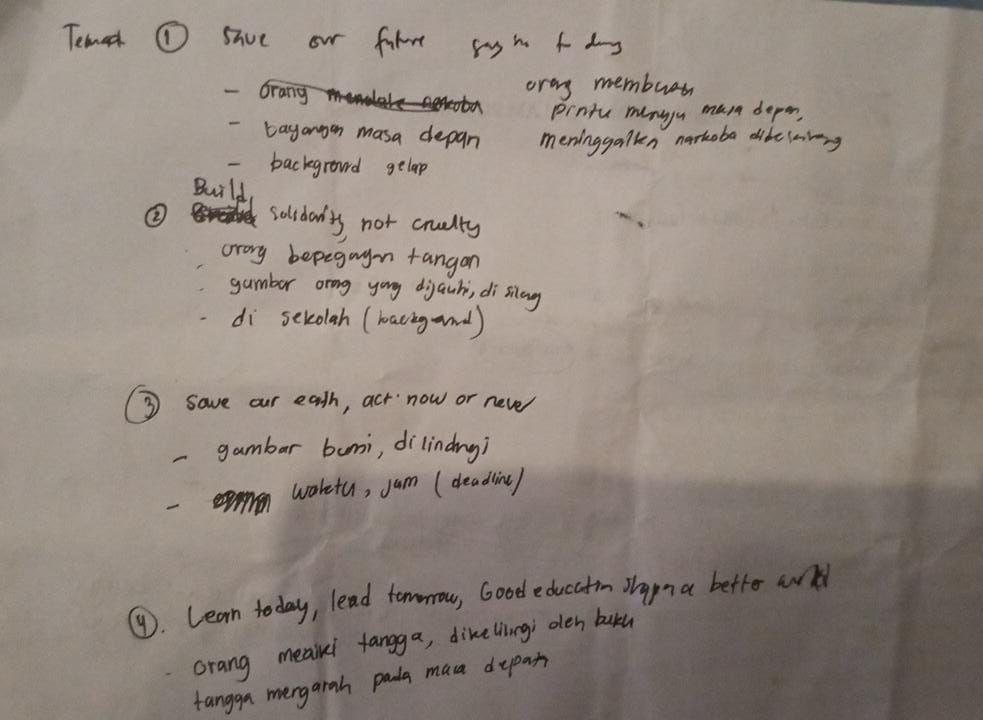 Tema ① Save our future say no to drug
- Orang menolak narkoba
orang membuka
pintu menuju masa depan,
meninggalkn narkoba dibelakang
- bayangan masa depan
- background gelap
Build
② solidarity, not cruelty
- orang bepegagan tangan
- gambar orang yang dijauhi, di silang
- di sekolah (background)
③ Save our eath, act now or never
- gambar bumi, dilindngi
- waktu, jam (deadline)
④. Learn today, lead tomorrow, Good education shape a better world
- orang meaiki tangga, dikelilingi oleh buku
tangga mengarah pada masa depan